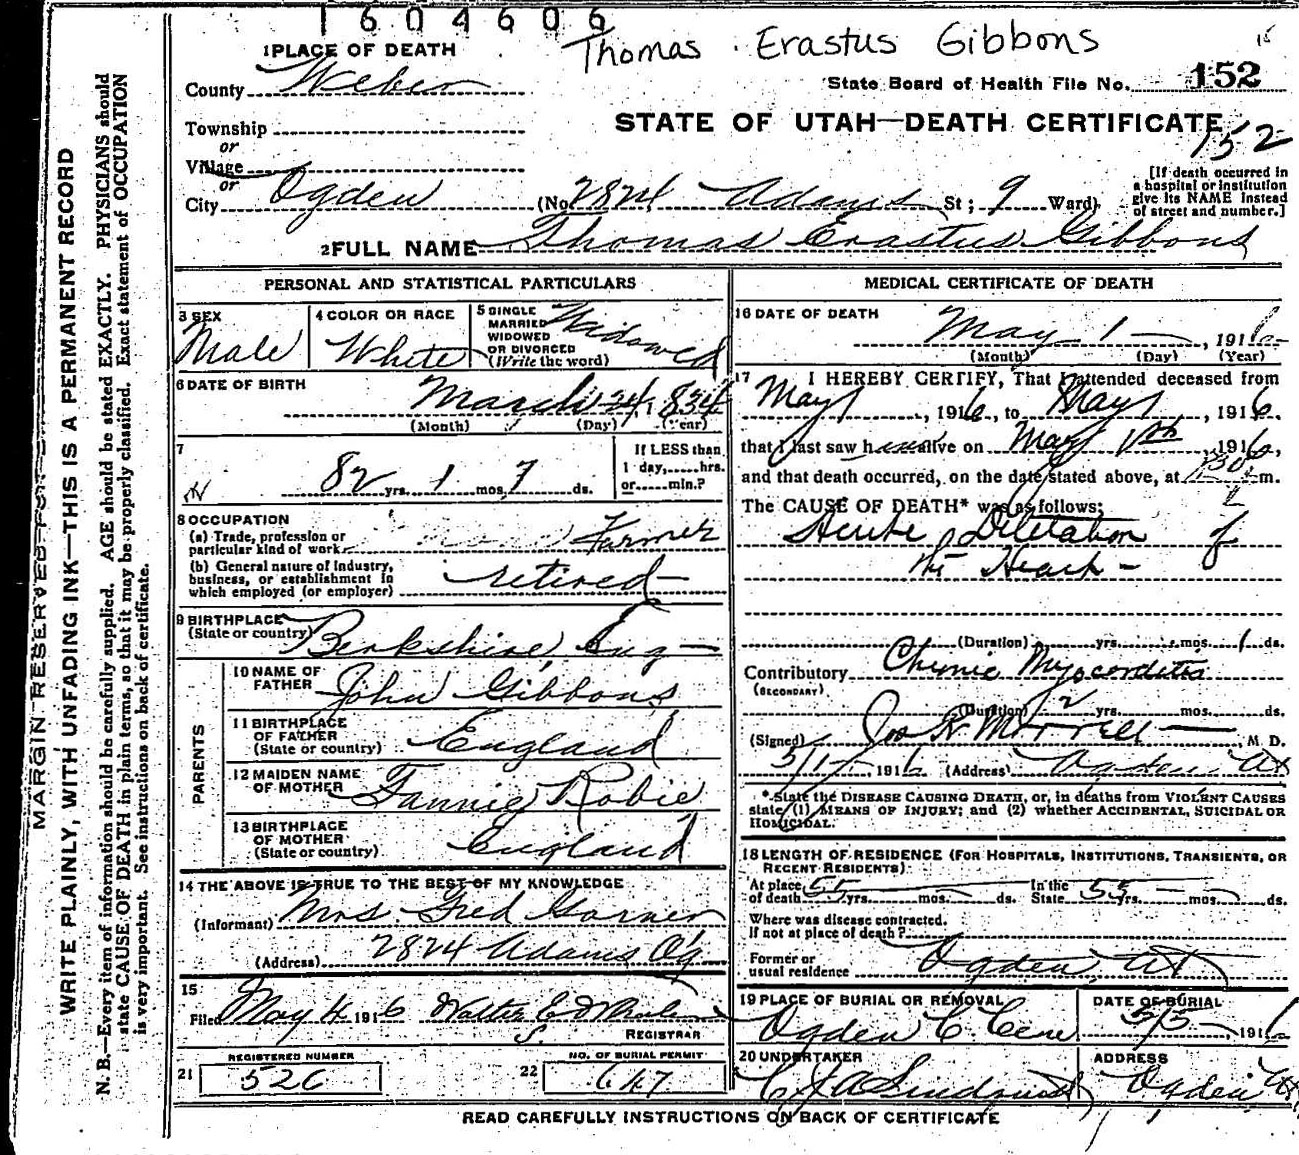 1604606
Thomas Erastus Gibbons
1 PLACE OF DEATH
County Weber
State Board of Health File No. 152
Township
or
Village
or
City Ogden (No. 2824 Adams St; 9 Ward)
STATE OF UTAH—DEATH CERTIFICATE
152
[If death occurred in
a hospital or institution
give its NAME instead
of street and number.]
2 FULL NAME Thomas Erastus Gibbons
PERSONAL AND STATISTICAL PARTICULARS
3 SEX
Male
4 COLOR OR RACE
White
5 SINGLE
MARRIED
WIDOWED
OR DIVORCED
(Write the word)
Widowed
6 DATE OF BIRTH
March 24, 1834
(Month) (Day) (Year)
7
82 yrs. 1 mos. 7 ds.
If LESS than
1 day,......hrs.
or......min.?
8 OCCUPATION
(a) Trade, profession or
particular kind of work Farmer
(b) General nature of Industry,
business, or establishment in
which employed (or employer) retired
9 BIRTHPLACE
(State or country) Berkshire, Eng
PARENTS
10 NAME OF
FATHER John Gibbons
11 BIRTHPLACE
OF FATHER
(State or country) England
12 MAIDEN NAME
OF MOTHER Fannie Robie
13 BIRTHPLACE
OF MOTHER
(State or country) England
14 THE ABOVE IS TRUE TO THE BEST OF MY KNOWLEDGE
(Informant) Mrs. Fred Garner
(Address) 2824 Adams Og
15
Filed May 4 1916 Walter E
REGISTRAR
REGISTERED NUMBER
21 526
NO. OF BURIAL PERMIT
22 647
MEDICAL CERTIFICATE OF DEATH
16 DATE OF DEATH
May 1, 1916
(Month) (Day) (Year)
17 I HEREBY CERTIFY, That I attended deceased from
May 1, 1916, to May 1, 1916.
that I last saw h alive on May 1st, 1916,
and that death occurred, on the date stated above, at m.
The CAUSE OF DEATH* was as follows:
Acute Diletation of
the Heart
(Duration) yrs. mos. 1 ds.
Contributory Chronic Myocarditis
(SECONDARY)
(Duration) 2 yrs. mos. ds.
(Signed) Jos R Morrell M. D.
5/1 1916 (Address) Ogden Ut
* State the DISEASE CAUSING DEATH, or, in deaths from VIOLENT CAUSES
state (1) MEANS OF INJURY; and (2) whether ACCIDENTAL, SUICIDAL OR
HOMICIDAL.
18 LENGTH OF RESIDENCE (FOR HOSPITALS, INSTITUTIONS, TRANSIENTS, OR
RECENT RESIDENTS)
At place
of death 55 yrs. mos. ds.
In the
State 55 yrs. mos. ds.
Where was disease contracted.
If not at place of death?
Former or
usual residence Ogden, Ut
19 PLACE OF BURIAL OR REMOVAL
Ogden C Cem
DATE OF BURIAL
5/5 1916
20 UNDERTAKER
ADDRESS
Ogden Ut
READ CAREFULLY INSTRUCTIONS ON BACK OF CERTIFICATE
MARGIN RESERVED FOR
WRITE PLAINLY, WITH UNFADING INK—THIS IS A PERMANENT RECORD
N. B.—Every item of information should be carefully supplied. AGE should be stated EXACTLY. PHYSICIANS should
state CAUSE OF DEATH in plain terms, so that it may be properly classified. Exact statement of OCCUPATION
is very important. See instructions on back of certificate.